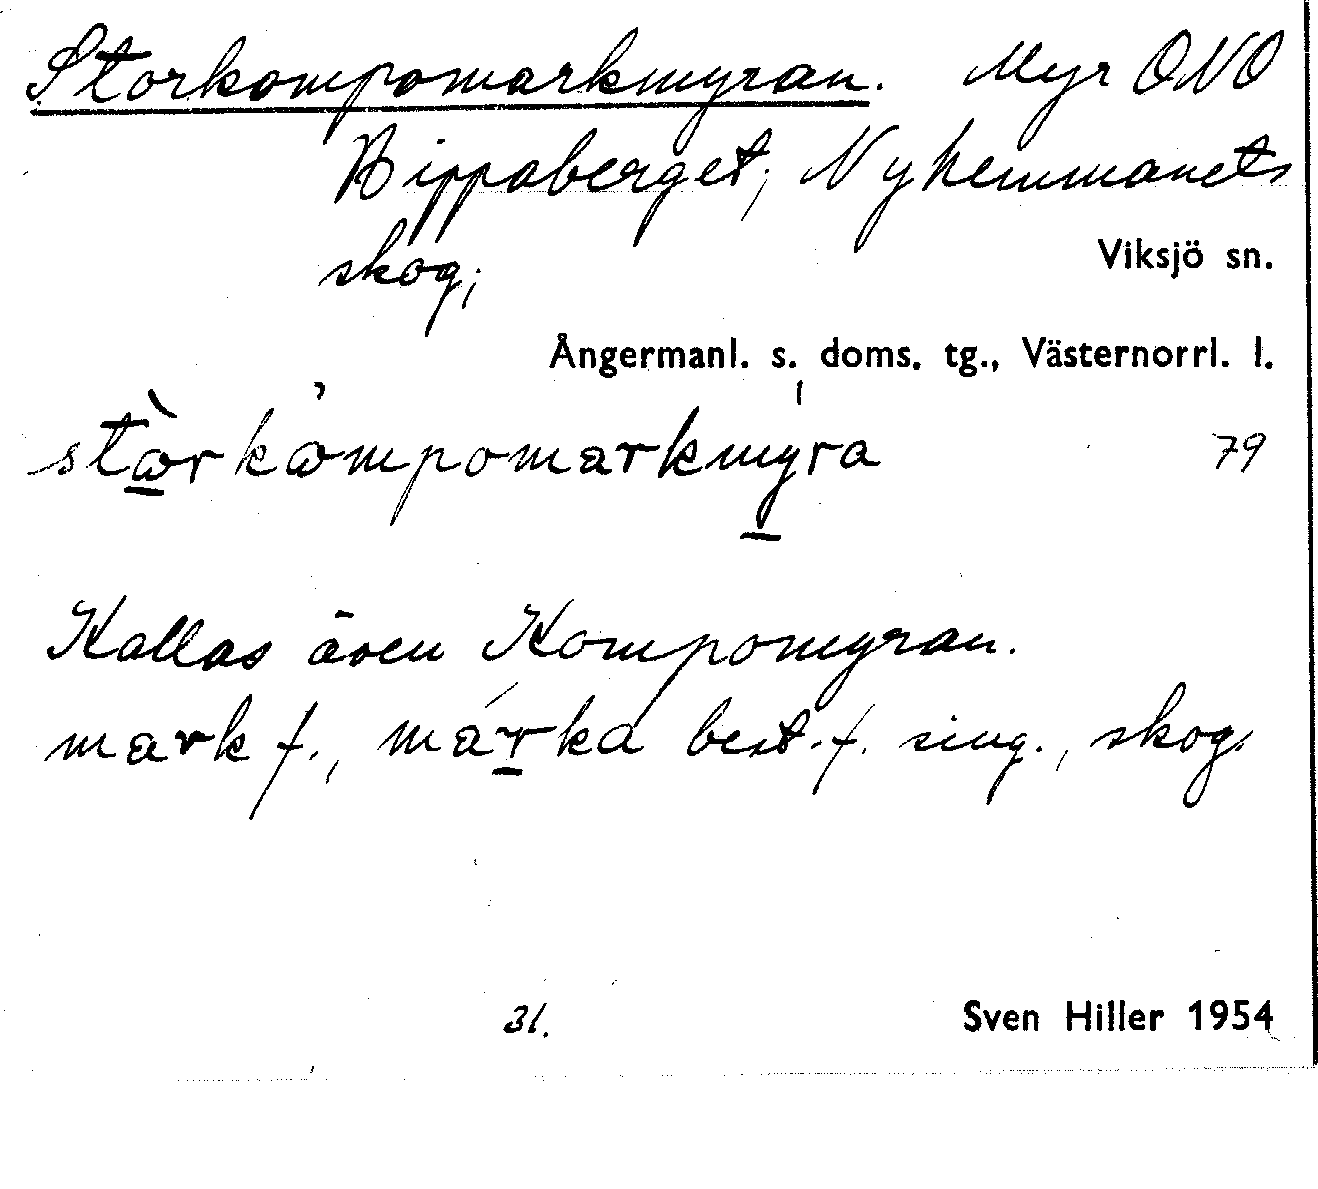 Storkompomarkmyran. Myr ONO
Bippaberget, Nyhemmanets
skog,
Viksjö sn.
Ångermanl. s. doms. tg., Västernorrl. l.
79
Kallas även Kompomyran.
mark f., best. f. sing., skog
31. Sven Hiller 1954